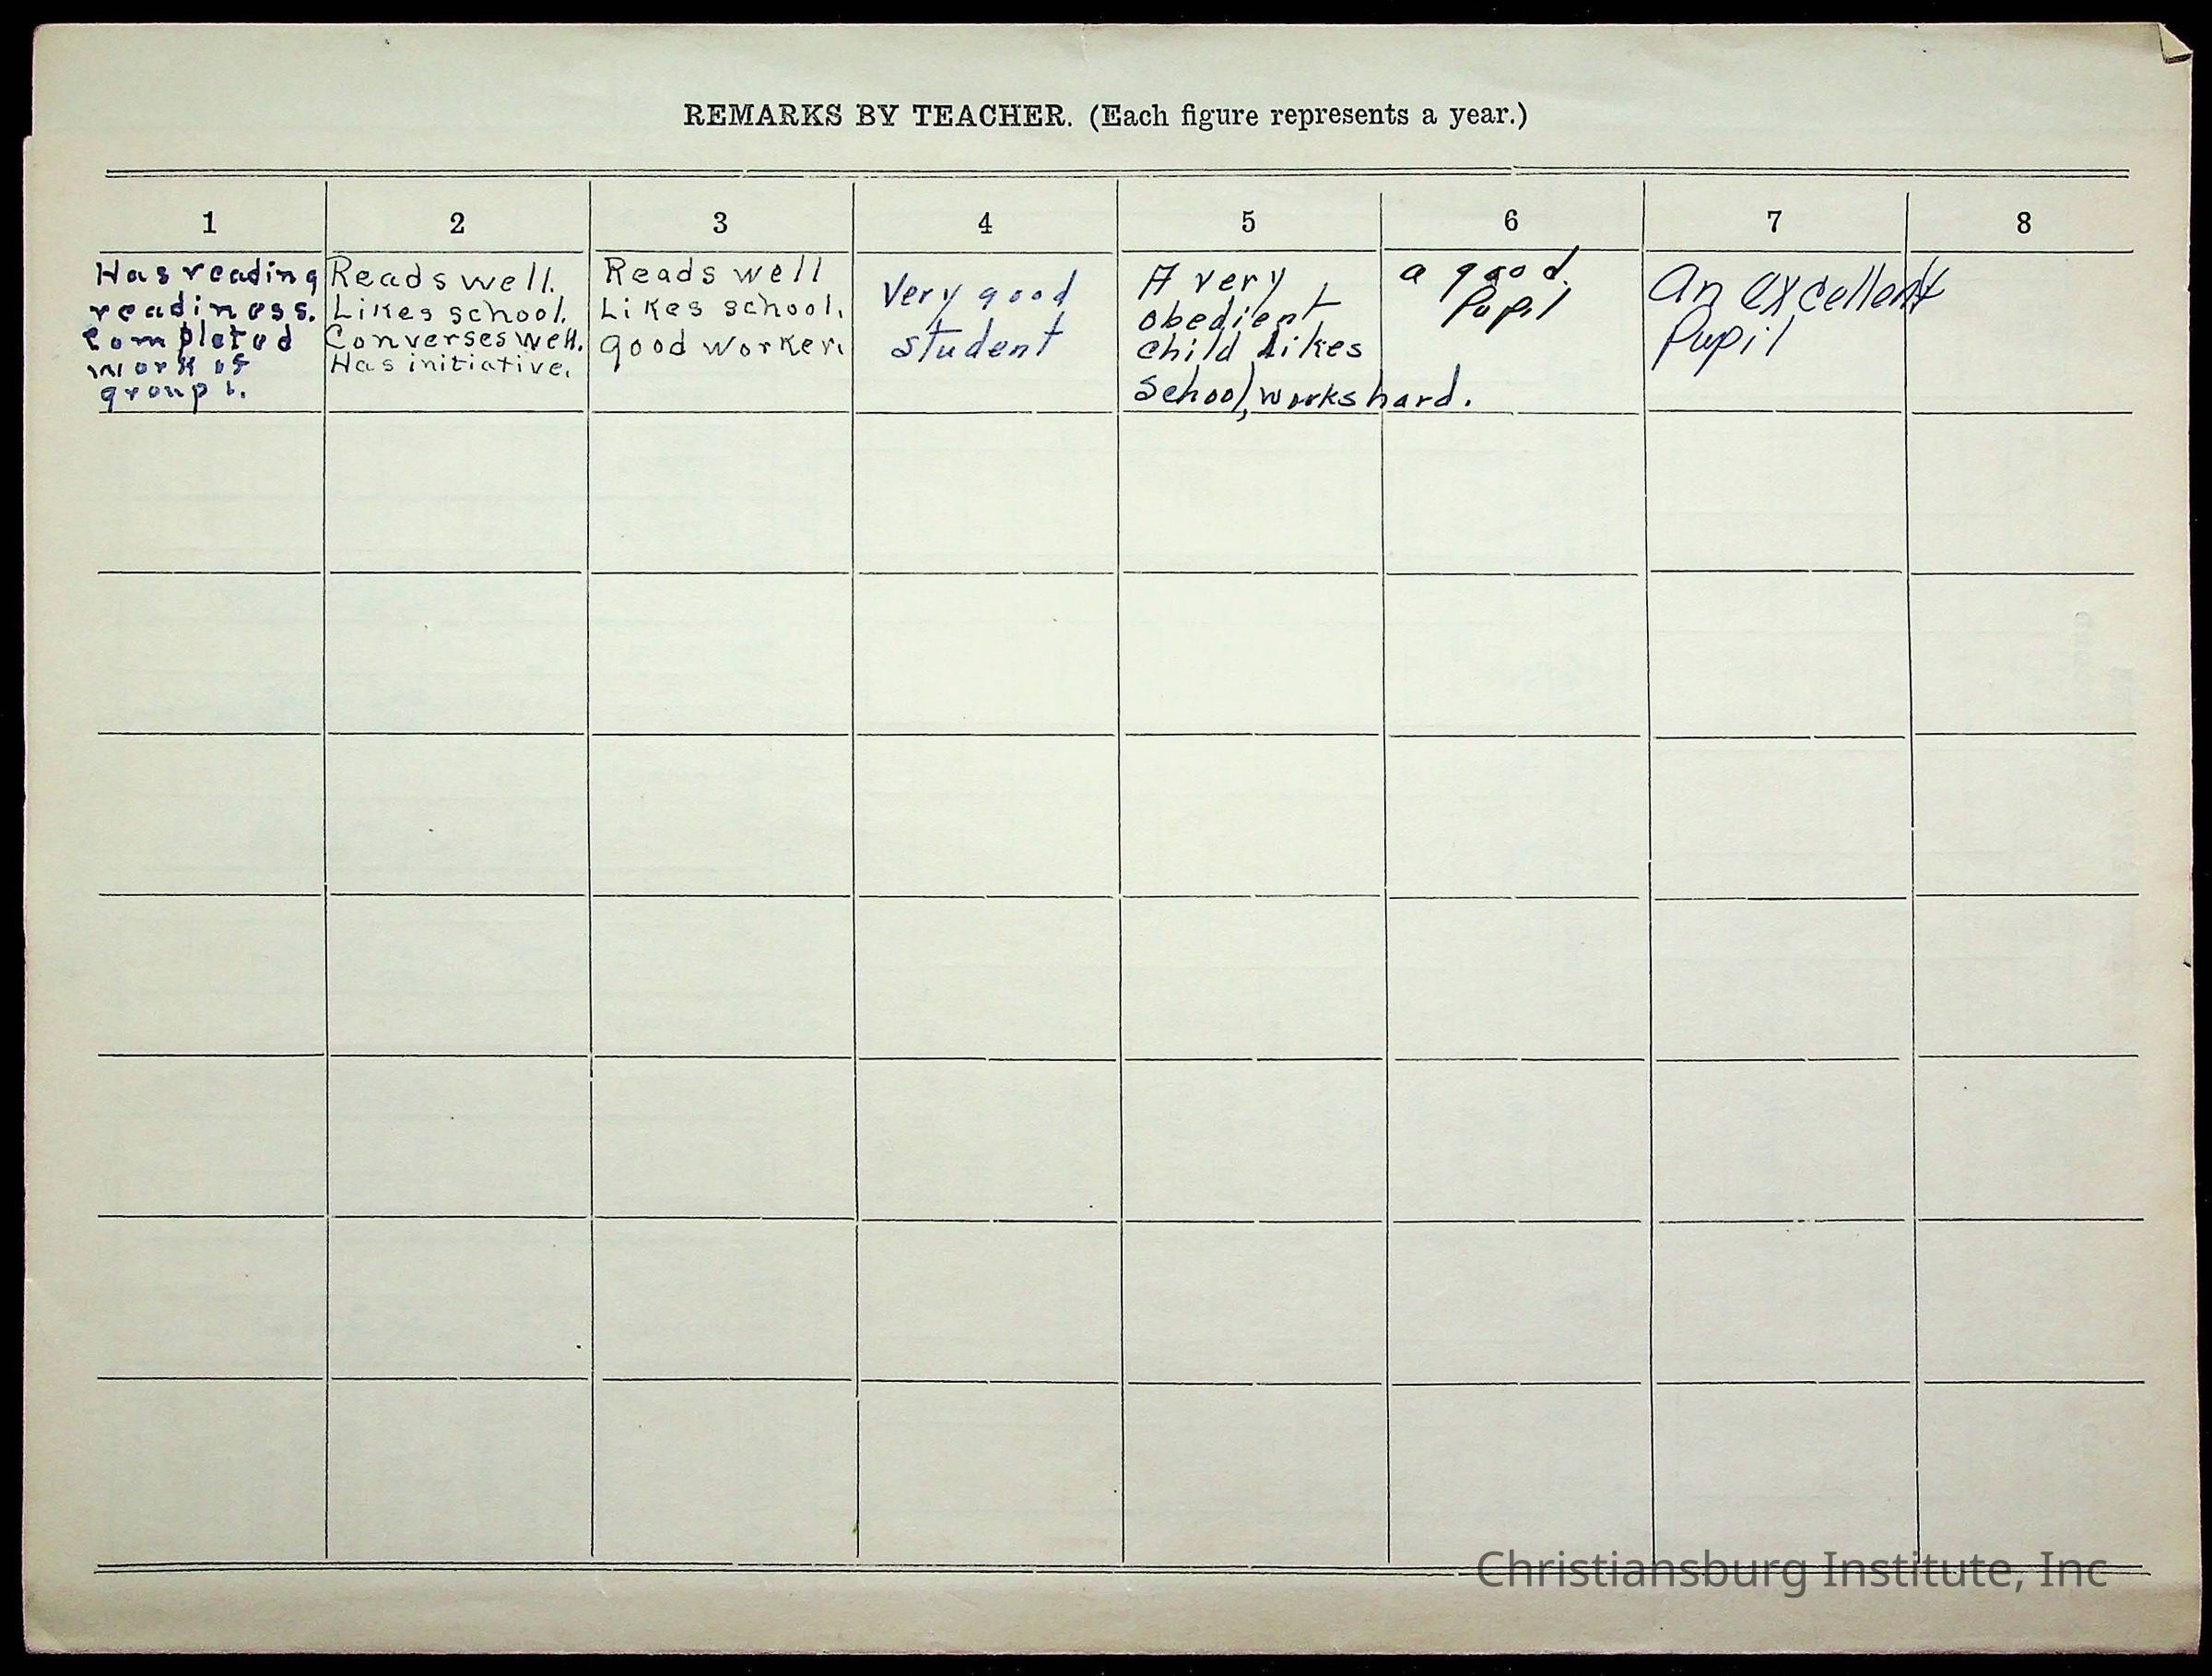 REMARKS BY TEACHER. (Each figure represents a year.)
1 2 3 4 5 6 7 8
Has reading
readiness.
Completed
work of
group 1.
Reads well.
Likes school.
Converses well.
Has initiative.
Reads well
Likes school.
good worker.
Very good
student
A very
obedient
child likes
School, works hard.
a good
Pupil
An excellent
Pupil
Christiansburg Institute, Inc